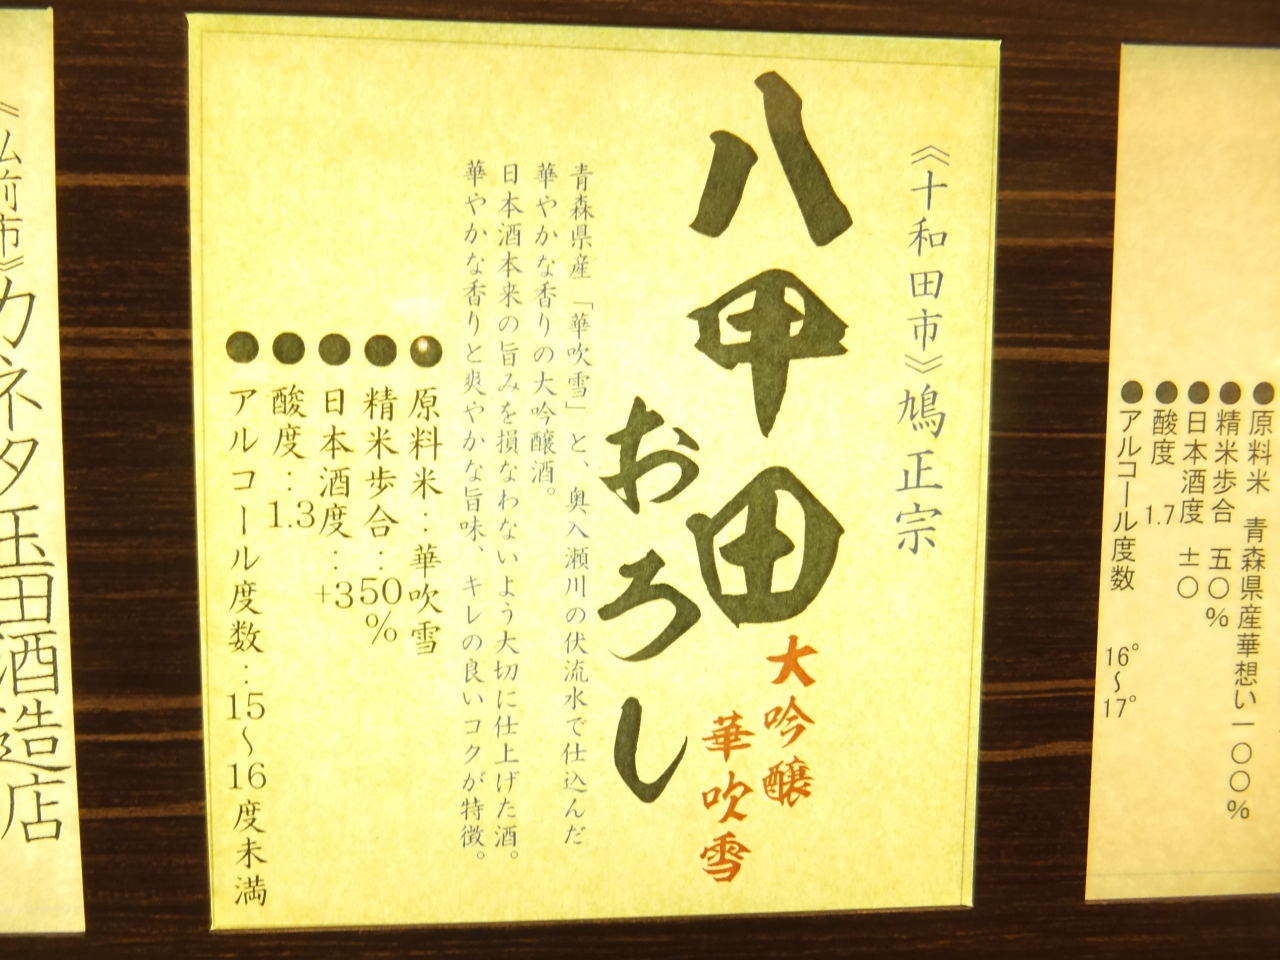 原料米 青森県産華想い一〇〇%
精米歩合 五〇%
日本酒度 ±〇
酸度 1.7
アルコール度数 16°~17°
《十和田市》鳩正宗
八甲田
おろし
大吟醸
華吹雪
青森県産「華吹雪」と、奥入瀬川の伏流水で仕込んだ
華やかな香りの大吟醸酒。
日本酒本来の旨みを損なわないよう大切に仕上げた酒。
華やかな香りと爽やかな旨味、キレの良いコクが特徴。
●原料米:華吹雪
●精米歩合:50%
●日本酒度:+3
●酸度:1.3
●アルコール度数:15~16度未満
《弘前市》カネタ玉田酒造店